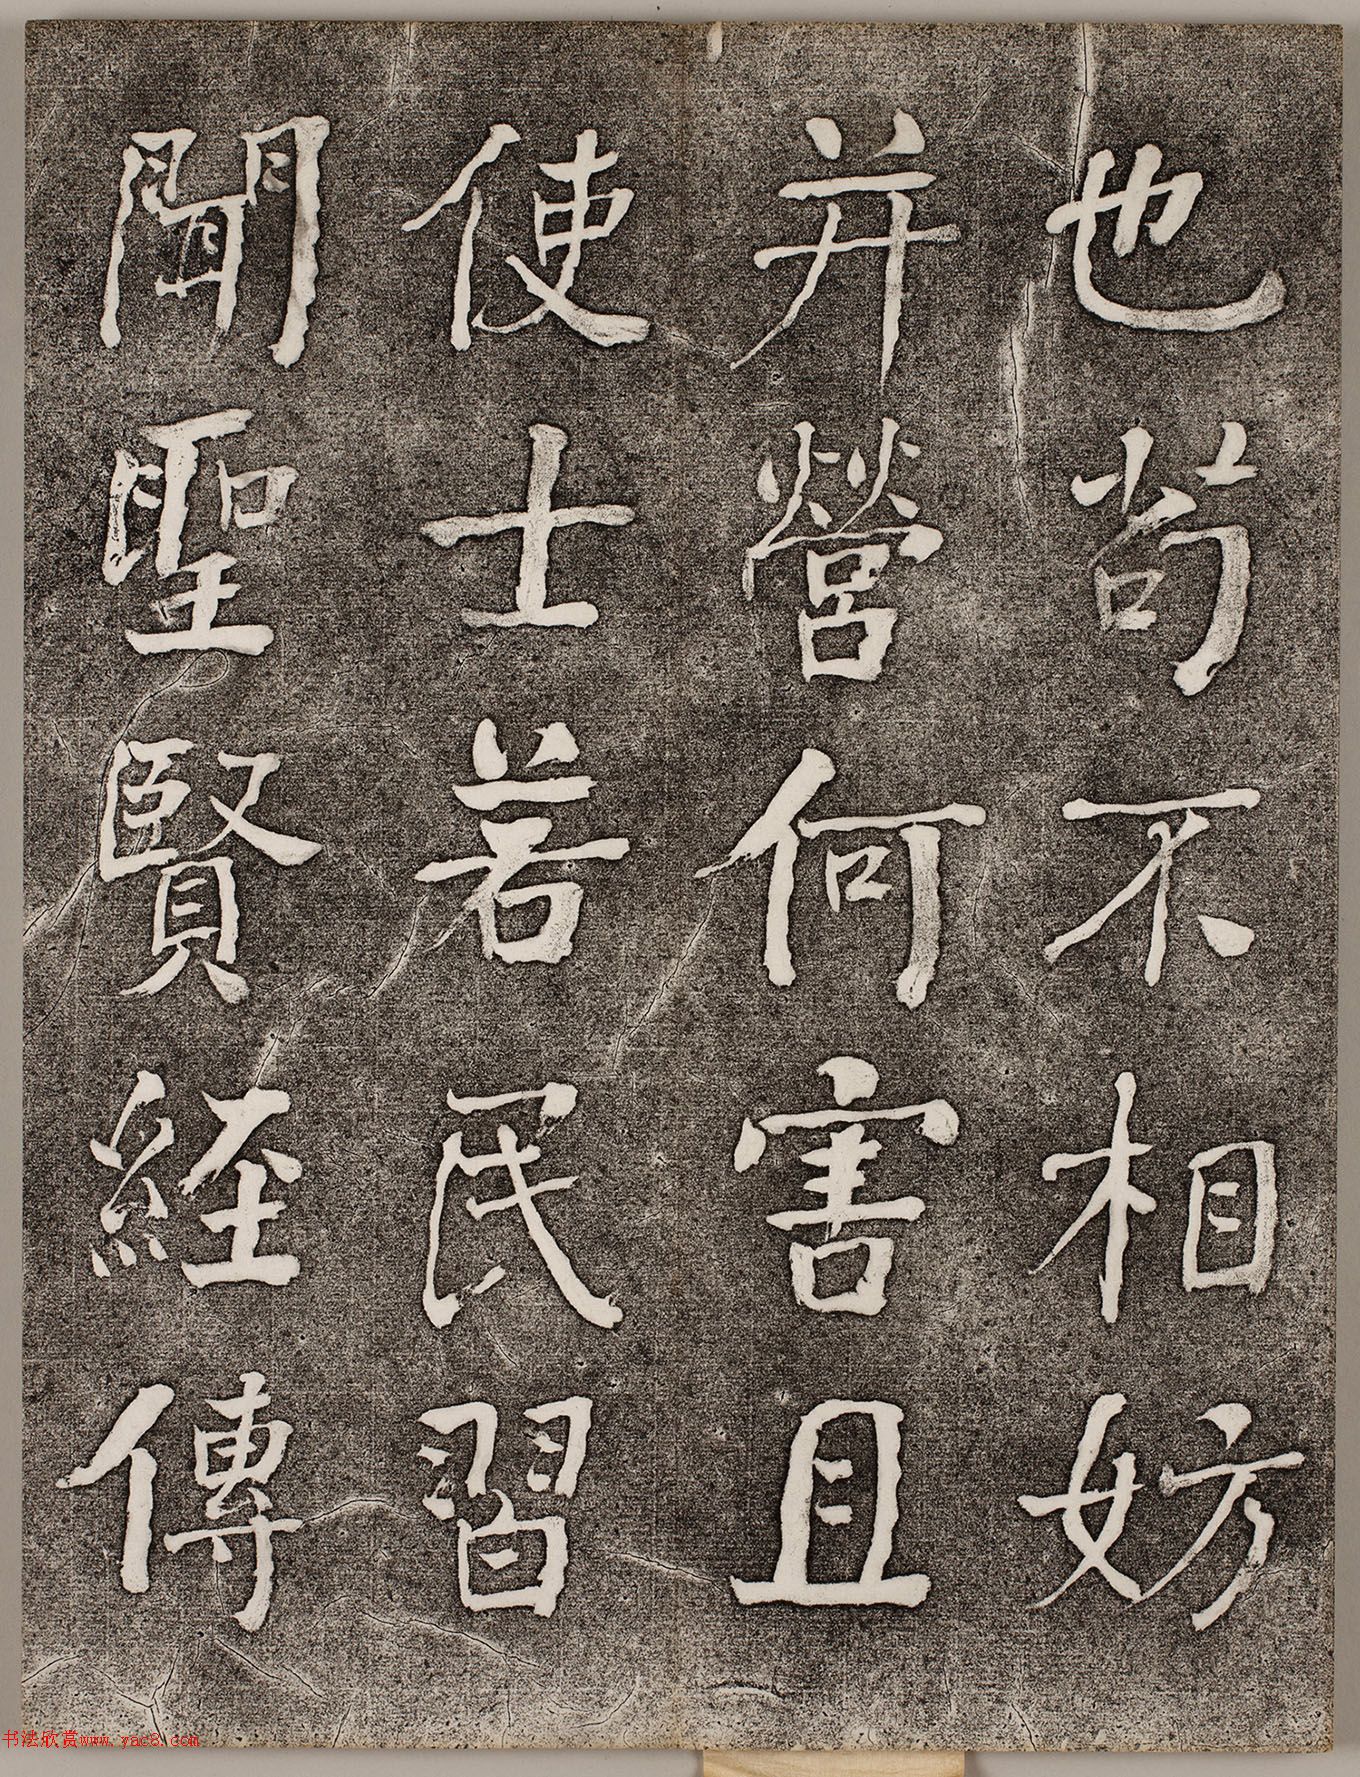 也苟不相妨
并營何害且
使士若民習
聞聖賢經傳
书法欣赏www.yac8.com